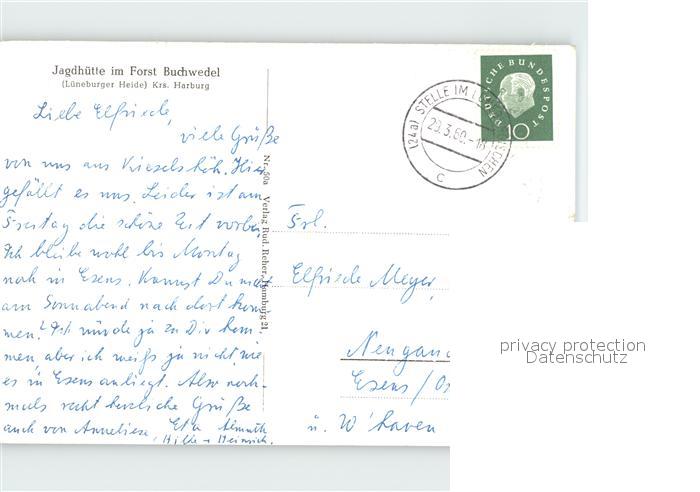 Jagdhütte im Forst Buchwedel
(Lüneburger Heide) Krs. Harburg
Liebe Elfriede,
viele Grüße
von uns aus Kieselshöh. Hier
gefällt es uns. Leider ist am
Freitag die schöne Zeit vorbei.
Ich bleibe wohl bis Montag
noch in Esens. Kannst Du nicht
am Sonnabend nach dort kom-
men? Ich würde ja zu Dir kom-
men, aber ich weiß ja nicht, wie
es in Esens anliegt. Also noch-
mals recht herzliche Grüße
auch von Anneliese, Eta Almuth
Hilke + Heinrich.
Nr. 50a Verlag Rud. Reher, Hamburg 21
(24a) STELLE IM
29.3.60.-18
c
DEUTSCHE BUNDESPOST
10
Frl.
Elfriede Meyer,
Neugau
Esens/Os
ü. W'haven
privacy protection
Datenschutz